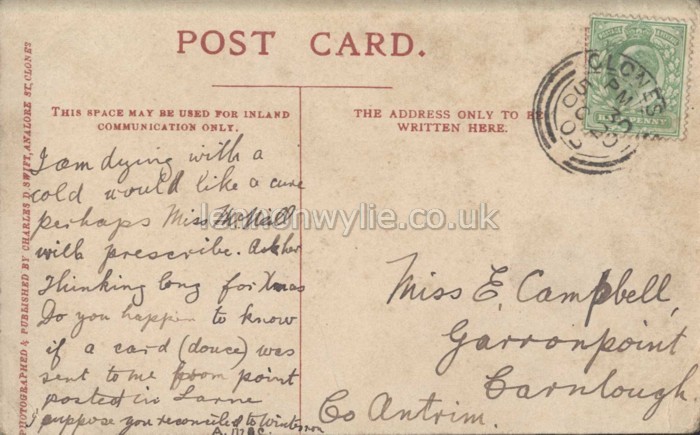 POST CARD.
THIS SPACE MAY BE USED FOR INLAND
COMMUNICATION ONLY.
THE ADDRESS ONLY TO BE
WRITTEN HERE.
PHOTOGRAPHED & PUBLISHED BY CHARLES D. SWIFT, ANALORE ST, CLONES
CLONES
PM
HALFPENNY
I am dying with a
cold would like a cure
perhaps Miss McNeill
will prescribe. Ask her
Thinking long for Xmas
Do you happen to know
if a card (douce) was
sent to me from point
posted in Larne
I suppose you reconciled to
A. McC.
Miss E. Campbell,
Garronpoint
Carnlough.
Co Antrim.
lennonwylie.co.uk